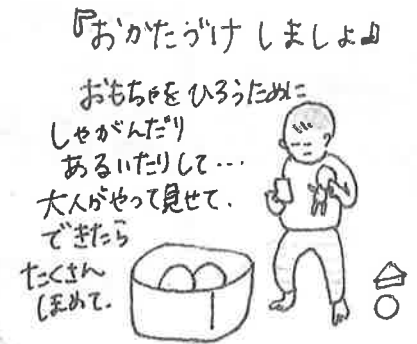 『おかたづけ しましょ』
おもちゃを ひろうために
しゃがんだり
あるいたりして…
大人がやって見せて、
できたら
たくさん
ほめて。